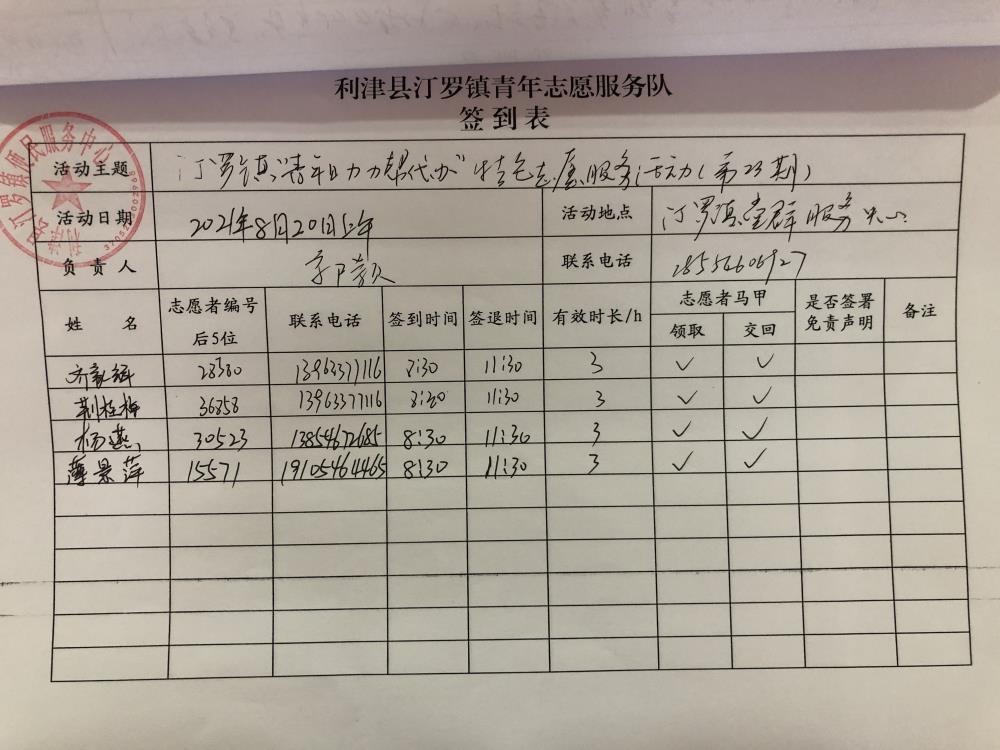 利津县汀罗镇青年志愿服务队
签到表
活动主题 汀罗镇"青年助力帮代办"特色志愿服务活动(第23期)
活动日期 2021年8月20日上午 活动地点 汀罗镇党群服务中心
负责人 联系电话 18554606927
姓名 志愿者编号后5位 联系电话 签到时间 签退时间 有效时长/h 志愿者马甲 领取 交回 是否签署免责声明 备注
28380 13963377116 8:30 11:30 3 ✓ ✓
荆桂梅 36858 13963377116 8:30 11:30 3 ✓ ✓
杨燕 30523 13854672685 8:30 11:30 3 ✓ ✓
薄景萍 15571 19105464465 8:30 11:30 3 ✓ ✓